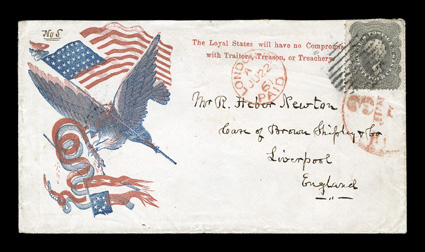 No 5
The Loyal States will have no Compromise
with Traitors, Treason, or Treachery.
LONDON
A
JU 22
6
PAID
Mr R. Heber Newton
Care of Brown Shipley & Co
Liverpool
England